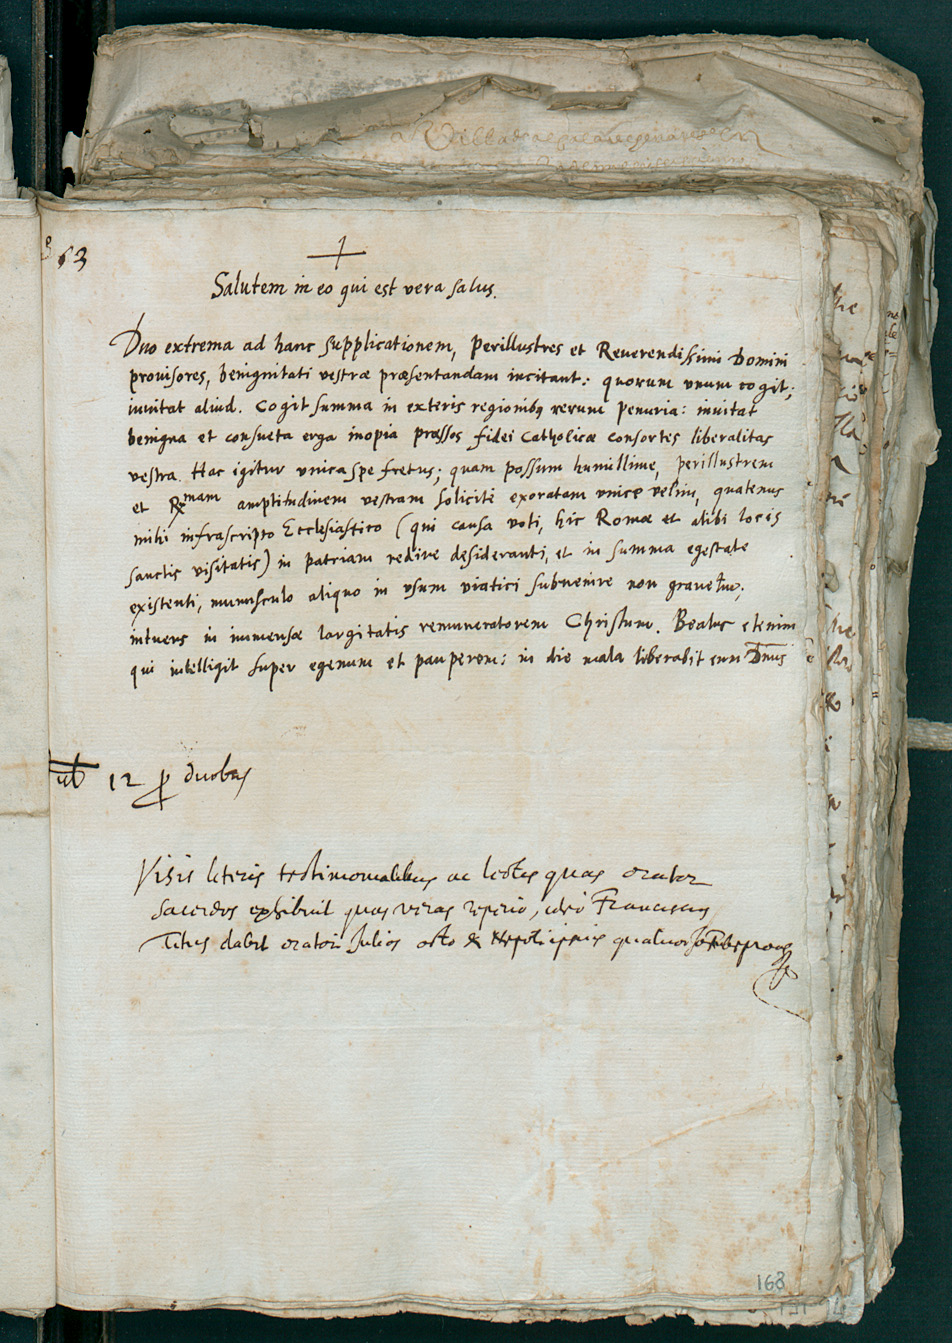 63
Salutem in eo qui est vera salus.
Duo extrema ad hanc supplicationem, Perillustres et Reverendissimi Domini
provisores, benignitati vestræ præsentandam incitant: quorum unum cogit;
invitat aliud. Cogit summa in exteris regionibq rerum penuria: invitat
benigna et consueta erga inopia pressos fidei Catholicæ consortes liberalitas
vestra. Hac igitur unica spe fretus; quam possum humillime, perillustrem
et Rmam amplitudinem vestram solicite exoratam unice velim, quatenus
mihi infrascripto Ecclesiastico (qui causa voti, hic Romæ et alibi locis
sanctis visitatis) in patriam redire desideranti, et in summa egestate
existenti, munusculo aliquo in usum viatici subvenire non gravetur,
intuens in immensæ largitatis remuneratorem Christum. Beatus etenim
qui intelligit super egenum et pauperem: in die mala liberabit eum Dnus
12 p duobus
Visis literis testimonialibus ac lectis quas orator
sacerdos exhibuit quas veras reperio, ideo Franciscus
Titus dabit oratori Julios octo &
168